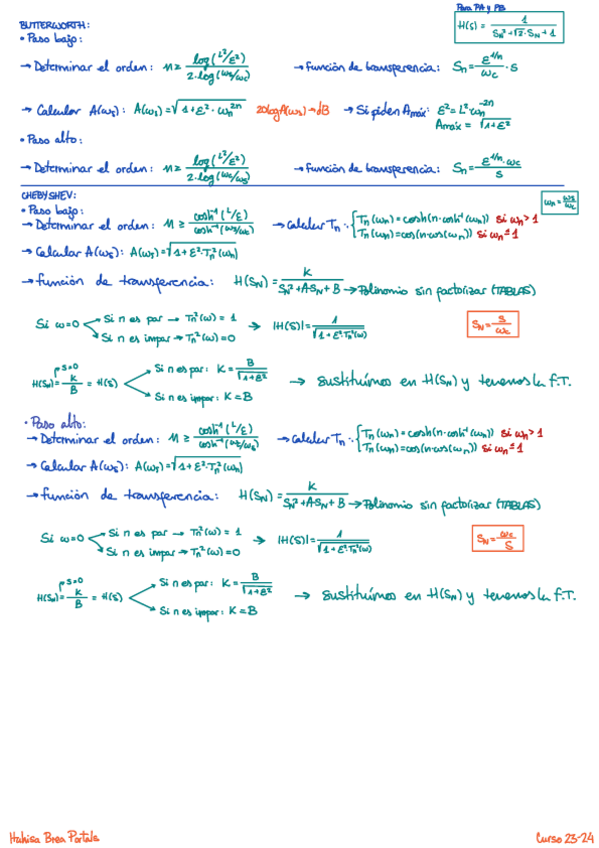 Para PA y PB
BUTTERWORTH:
H(s) = 1 / (S_N² + √2·S_N + 1)
• Paso bajo:
→ Determinar el orden: n ≥ log(L²/ε²) / (2·log(ωs/ωc)) → función de transferencia: Sn = ε^(1/n) / ωc · s
→ Calcular A(ωs): A(ωs) = √(1+ε²·ωn^2n) 20logA(ωs)→dB → Si piden Amáx: ε² = L²·ωn^-2n
Amáx = √(1+ε²)
• Paso alto:
→ Determinar el orden: n ≥ log(L²/ε²) / (2·log(ωc/ωs)) → función de transferencia: Sn = ε^(1/n)·ωc / s
CHEBYSHEV:
• Paso bajo:
ωn = ωs/ωc
→ Determinar el orden: n ≥ cosh⁻¹(L/ε) / cosh⁻¹(ωs/ωc) → Calcular Tn: { Tn(ωn) = cosh(n·cosh⁻¹(ωn)) si ωn > 1
Tn(ωn) = cos(n·cos(ωn)) si ωn ≤ 1
→ Calcular A(ωs): A(ωs) = √(1+ε²·Tn²(ωn))
→ función de transferencia: H(S_N) = K / (S_N² + A·S_N + B) → Polinomio sin factorizar (TABLAS)
Si ω=0 Si n es par → Tn²(ω) = 1
Si n es impar → Tn²(ω) = 0
→ |H(s)| = 1 / √(1+ε²Tn²(ω))
S_N = s/ωc
s=0
H(S_N) = K/B = H(s) Si n es par: K = B/√(1+ε²)
Si n es impar: K = B
→ Sustituimos en H(S_N) y tenemos la f.T.
• Paso alto:
→ Determinar el orden: n ≥ cosh⁻¹(L/ε) / cosh⁻¹(ωc/ωs) → Calcular Tn: { Tn(ωn) = cosh(n·cosh⁻¹(ωn)) si ωn > 1
Tn(ωn) = cos(n·cos(ωn)) si ωn ≤ 1
→ Calcular A(ωs): A(ωs) = √(1+ε²·Tn²(ωn))
→ función de transferencia: H(S_N) = K / (S_N² + A·S_N + B) → Polinomio sin factorizar (TABLAS)
Si ω=0 Si n es par → Tn²(ω) = 1
Si n es impar → Tn²(ω) = 0
→ |H(s)| = 1 / √(1+ε²Tn²(ω))
S_N = ωc/s
s=0
H(S_N) = K/B = H(s) Si n es par: K = B/√(1+ε²)
Si n es impar: K = B
→ Sustituimos en H(S_N) y tenemos la f.T.
Brea Portals
Curso 23-24